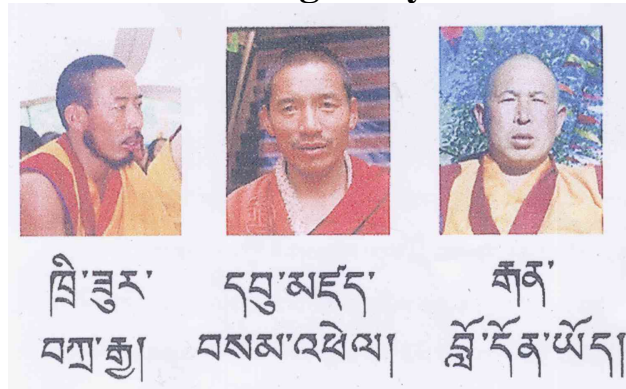 ཁྲི་ཟུར་
བཀྲ་རྒྱ།
དབུ་མཛད་
བསམ་འཕེལ།
རྒན་
བློ་དོན་ཡོད།